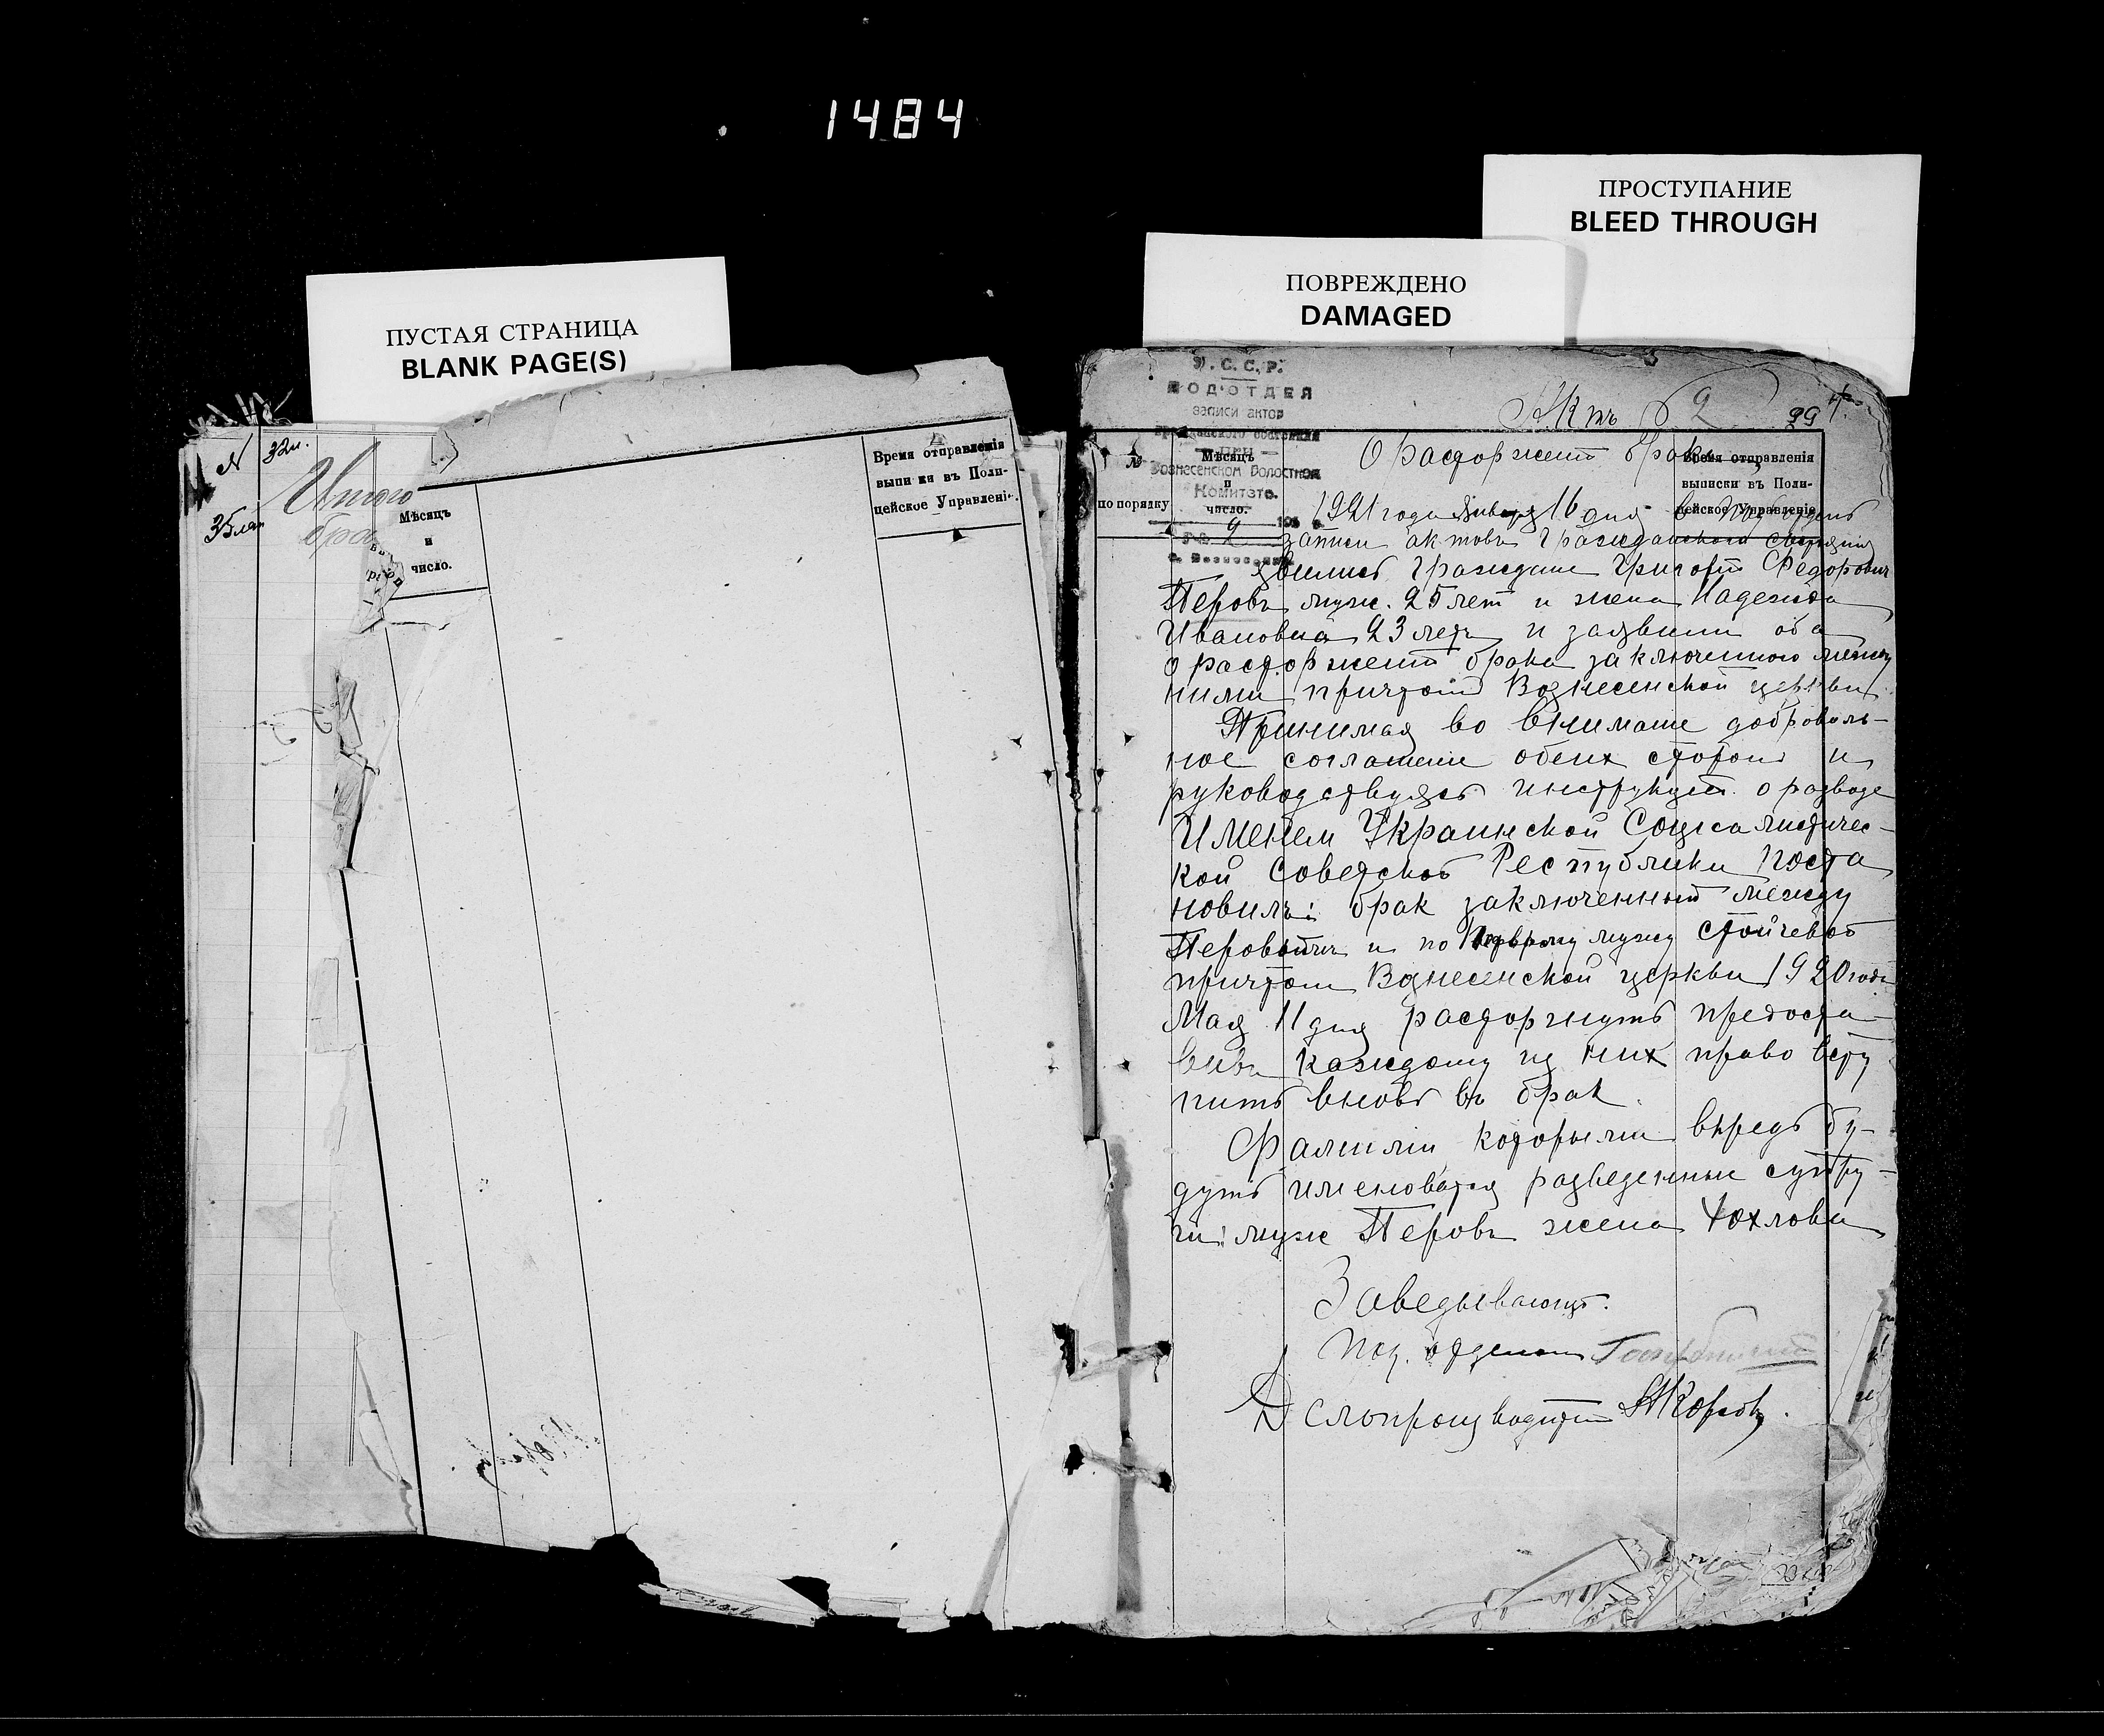 1484
ПРОСТУПАНИЕ
BLEED THROUGH
ПОВРЕЖДЕНО
DAMAGED
ПУСТАЯ СТРАНИЦА
BLANK PAGE(S)
№
32л.
35лят
Итого
бра
Мѣсяцъ
и
число.
Время отправленія
выписки въ Поли-
цейское Управленіе.
У.С.С.Р.
ПОДОТДЕЛ
записи актов
гражданского состояния
Вознесенском Волостном
Комитете.
2
с. Вознесенск
№
по порядку
Мѣсяцъ
и
число.
Время отправленія
выписки въ Поли-
цейское Управленіе
Актъ 2
О расторжении брака
1921 года Января 16 дня в Под'отдел
записи актовъ гражданского состояния
явились граждане Григорий Федорович
Перовъ муж. 25 лет и жена Надежда
Ивановна 23 летъ и заявили оба
о расторжении брака заключенного между
ними причтом Вознесенской церкви
Принимая во внимание доброволь-
ное соглашение обеих сторон и
руководствуясь инструкцией о разводе
Именем Украинской Социалистичес-
кой Советской Республики поста
новилъ: брак заключенный между
Перовымъ и по первому мужу Стойчевой
причтом Вознесенской церкви 1920 года
Мая 11 дня расторгнуть предоста-
вивъ каждому из них право всту
пить вновь въ брак.
Фамилии которыми впредь бу-
дуть именоватся разведенные супру-
ги: муж Перовъ жена Чохлова
Заведывающий.
Под. отделом
Делопроизводитель